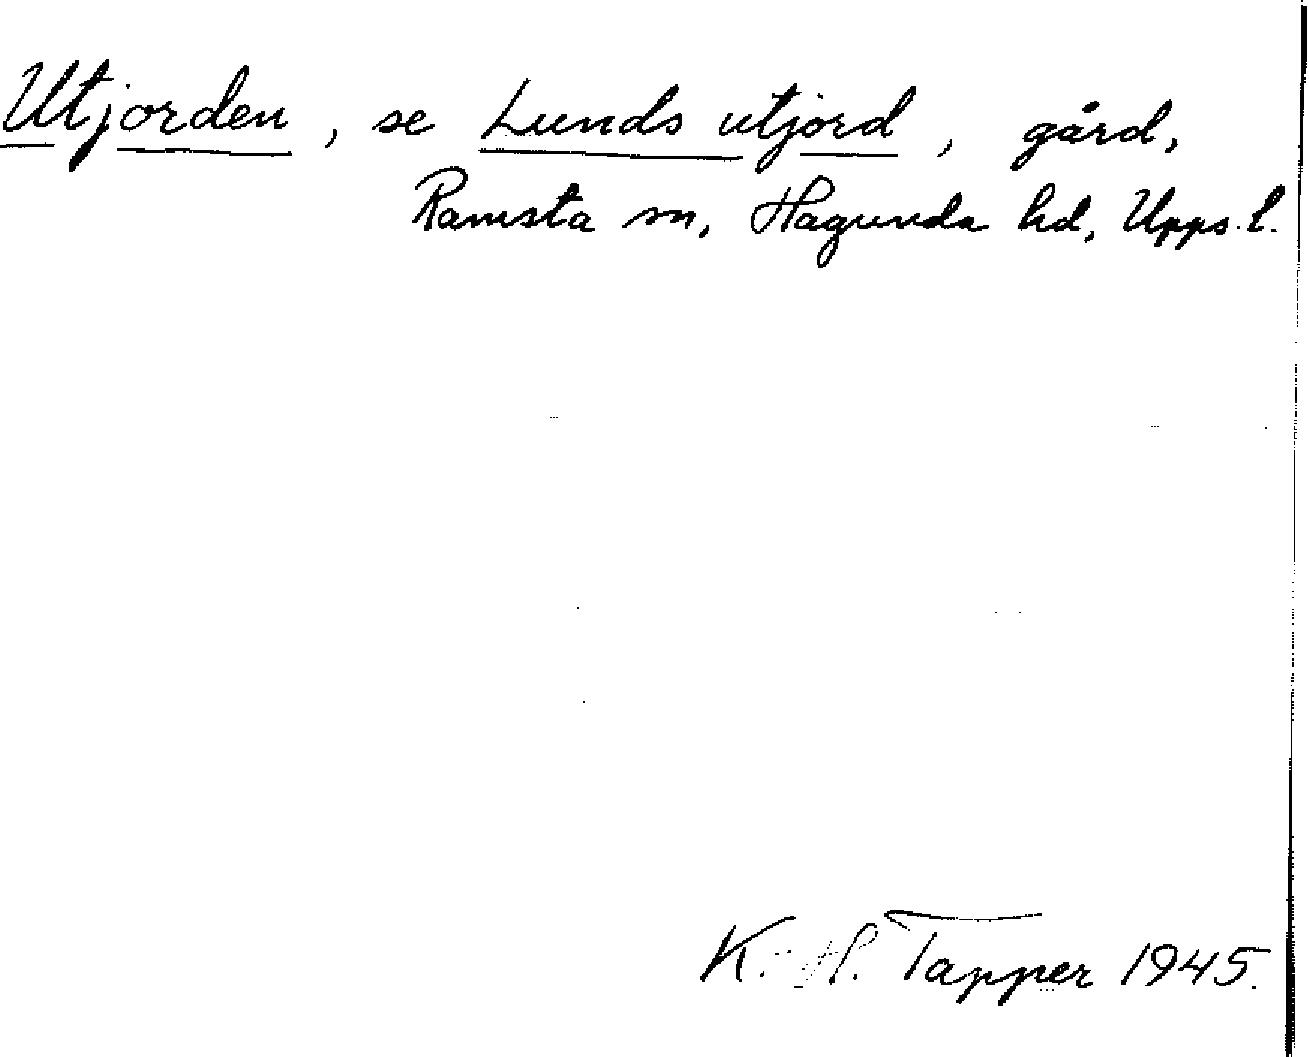 Utjorden, se Lunds utjord, gård,
Ramsta sn, Hagunda hd, Upps. l.
K. H. Tapper 1945.